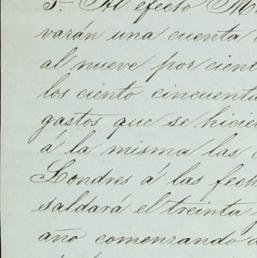 3.º Al efecto
varán una cuenta
al nueve por cient
los ciento cincuenta
gastos que se hicie
á la misma las
Londres á las fech
saldará el treinta
año comenzando